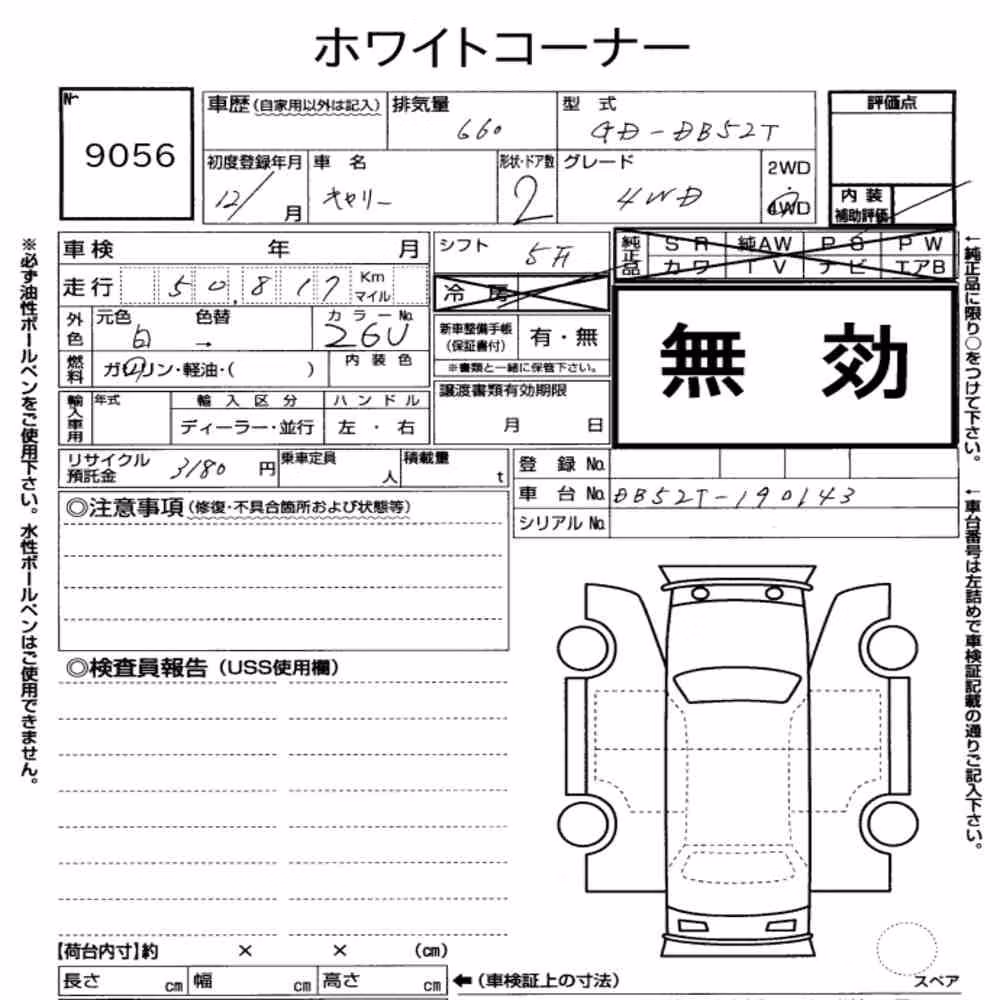 ホワイトコーナー
No. 9056
車歴(自家用以外は記入) 排気量 660 型式 GD-DB52T
評価点
初度登録年月 12/ 月 車名 キャリー 形状・ドア数 2 グレード 4WD 2WD 4WD
内装補助評価
車検 年 月 シフト 5F
純正品 SR 純AW PS PW
カワ TV ナビ エアB
走行 50,817 Km マイル 冷房
外色 元色 白 色替 → カラーNo. 26U
新車整備手帳(保証書付) 有・無
※書類と一緒に保管下さい。
燃料 ガソリン・軽油・( ) 内装色
無効
輸入車用 年式 輸入区分 ディーラー・並行 ハンドル 左・右
譲渡書類有効期限 月 日
リサイクル預託金 3180 円 乗車定員 人 積載量 t
登録No.
車台No. DB52T-190143
シリアルNo.
◎注意事項(修復・不具合箇所および状態等)
◎検査員報告(USS使用欄)
【荷台内寸】約 × × (cm)
長さ cm 幅 cm 高さ cm ←(車検証上の寸法)
スペア
※必ず油性ボールペンをご使用下さい。水性ボールペンはご使用できません。
←純正品に限り○をつけて下さい。
←車台番号は左詰めで車検証記載の通りご記入下さい。